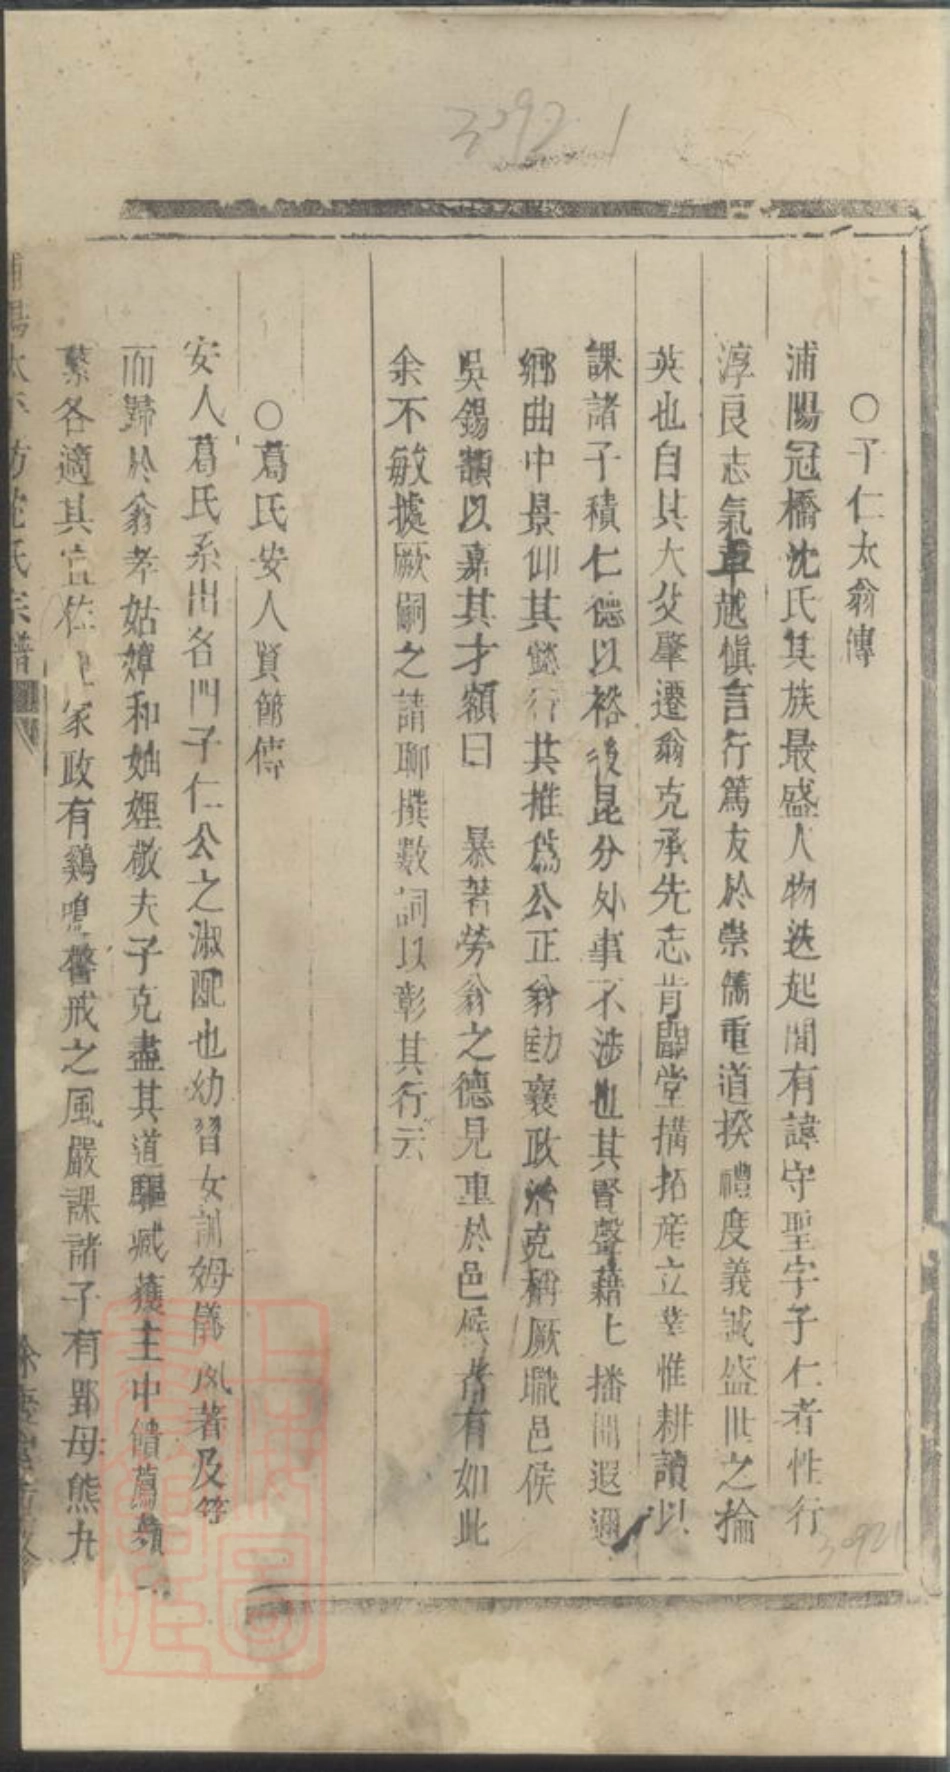 3092 1
○子仁太翁傳
浦陽冠橋沈氏其族最盛人物迭起間有諱守聖字子仁者性行
淳良志氣卓越愼言行篤友於崇儒重道揆禮度義誠盛世之掄
英也自其大父肇遷翁克承先志肯闢堂搆拓產立業惟耕讀以
課諸子積仁德以裕後昆分外事不涉也其腎聲藉上播間遐邇
鄉曲中景仰其懿行共推爲公正翁勷襄政治克稱厥職邑侯
吳錫額以嘉其才額曰 暴著勞翁之德見重於邑候者有如此
余不敏據厥嗣之請聊撰數詞以彰其行云
○葛氏安人賢節傳
安人葛氏系出名門子仁公之淑配也幼習女訓姆儀夙著及笄
而歸於翁孝姑嫜和妯娌敬夫子克盡其道驅臧獲主中饋薦蘋
蘩各適其宜 家政有鷄鳴警戒之風嚴課諸子有郢母熊丸
浦陽 沈氏宗譜
3092